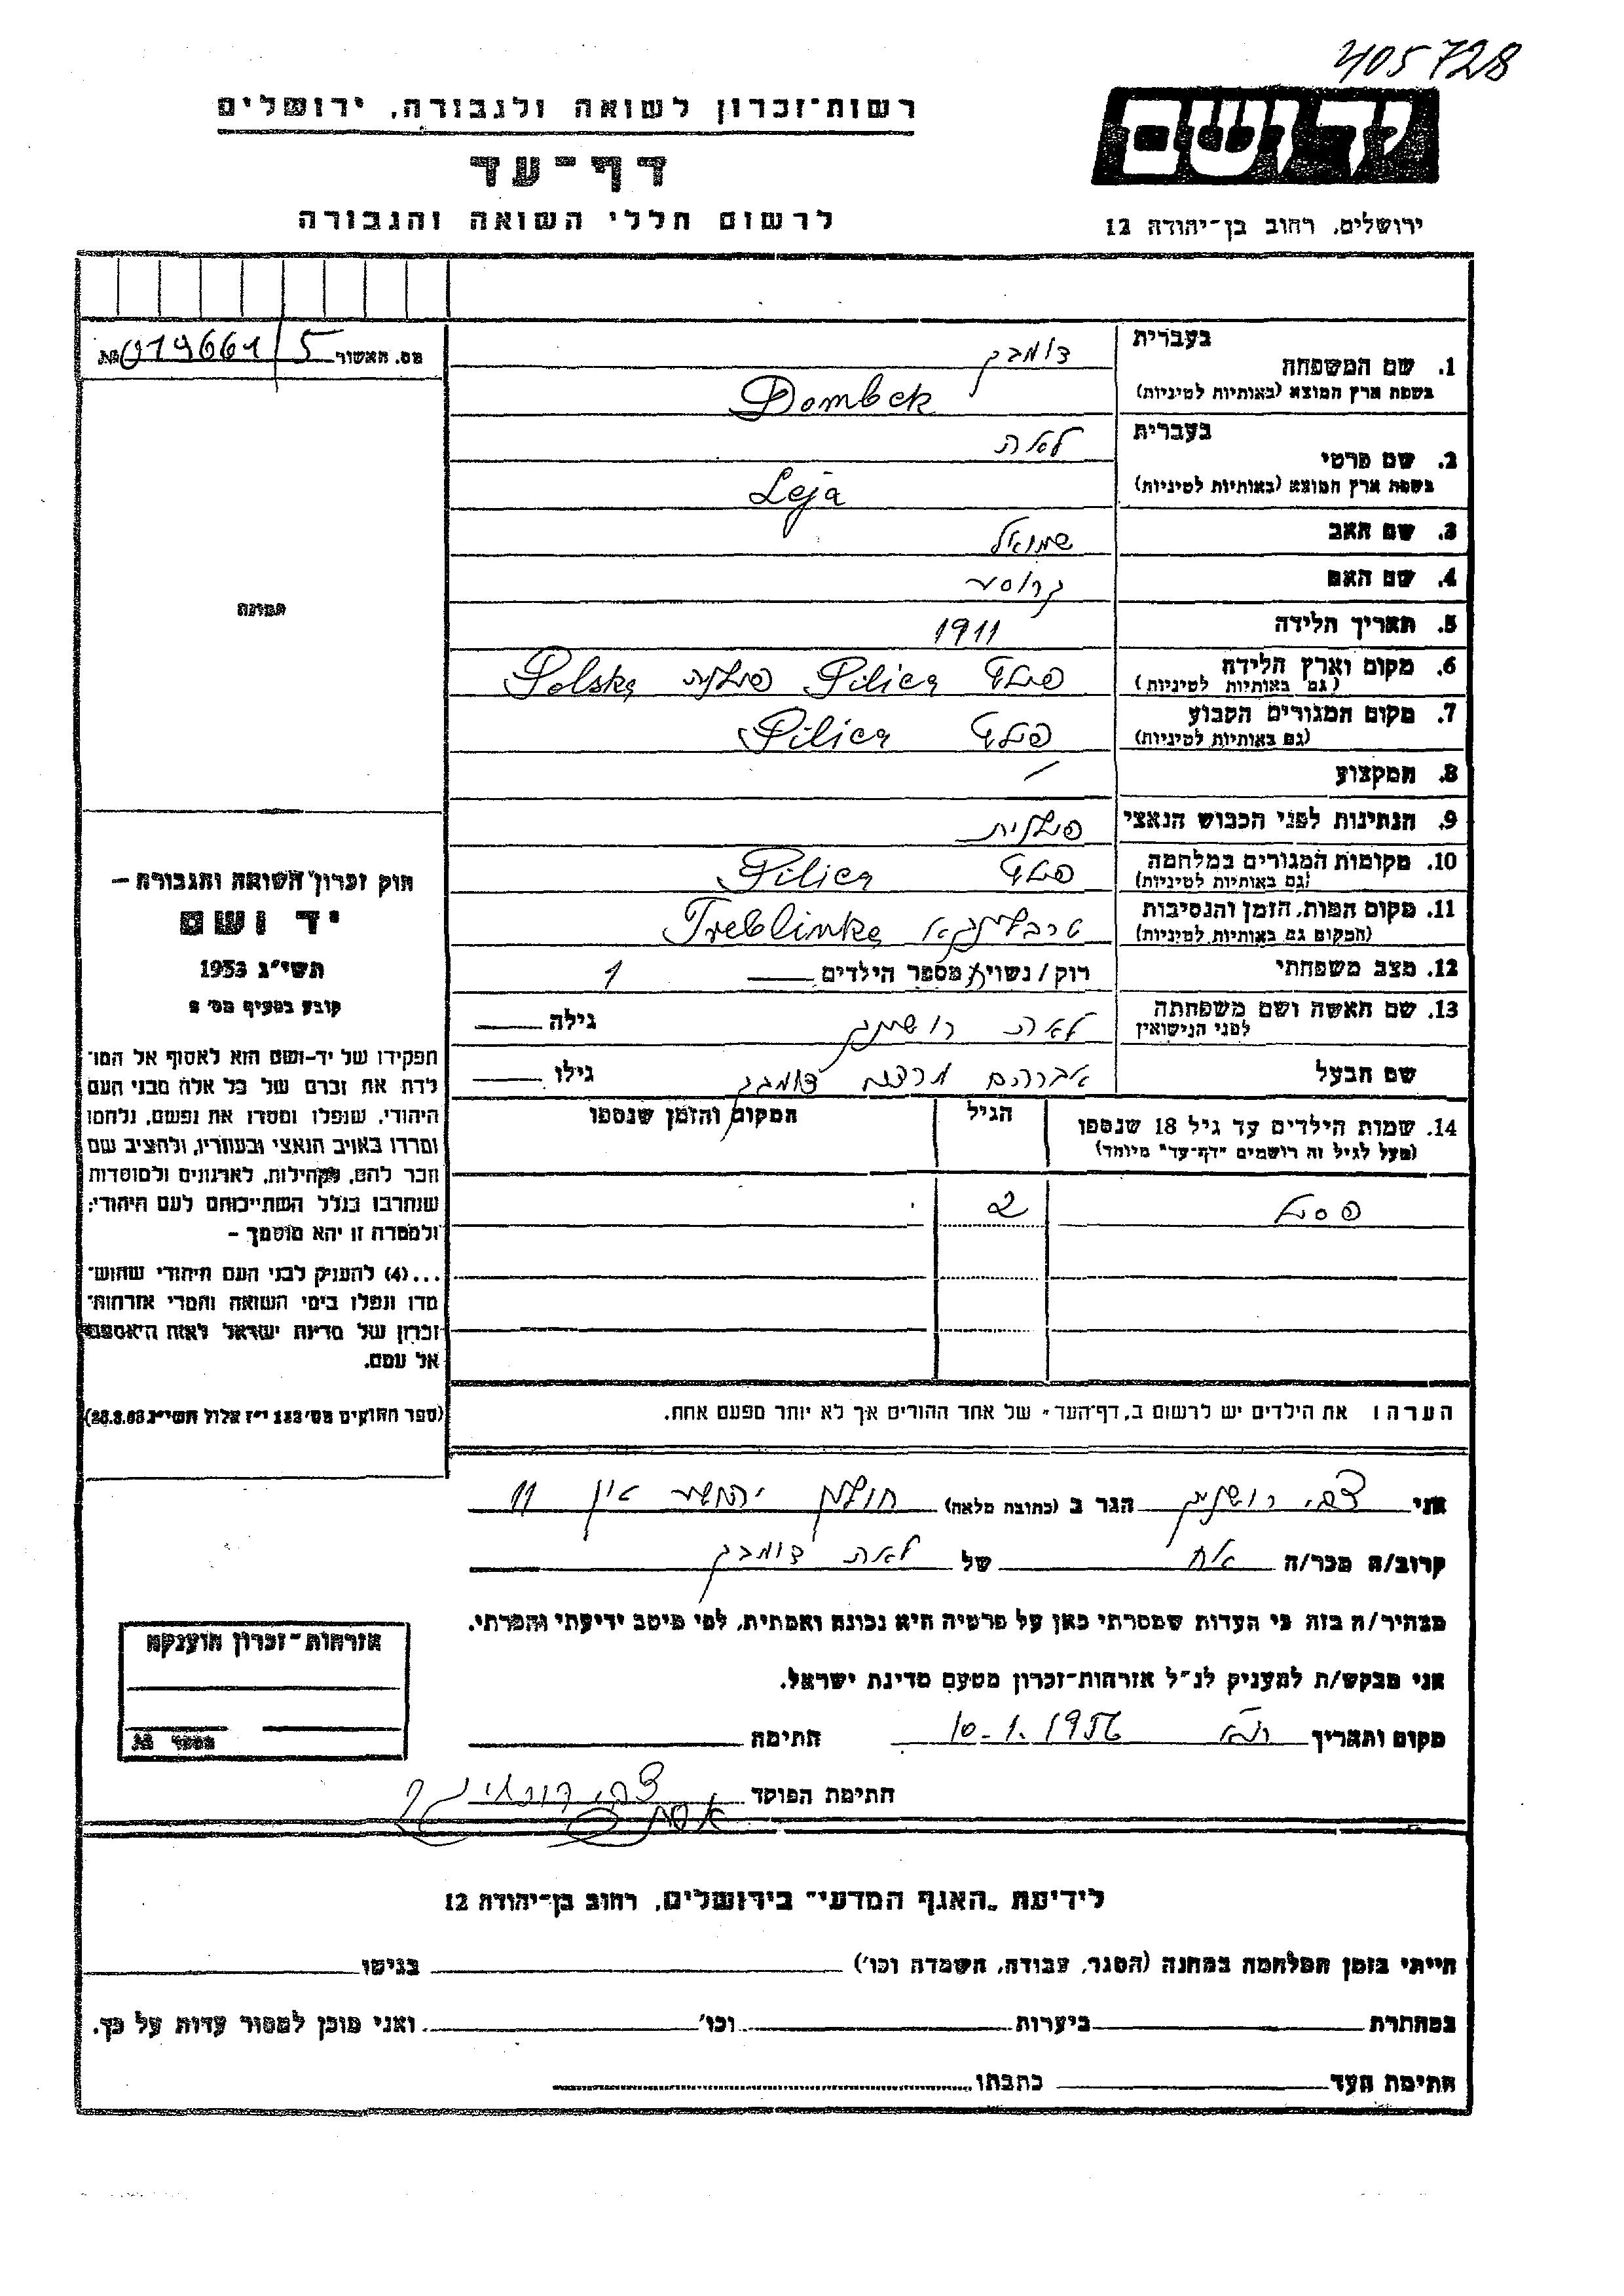 405728
יד ושם
ירושלים, רחוב בן-יהודה 12
רשות-זכרון לשואה ולגבורה, ירושלים
דף-עד
לרשום חללי השואה והגבורה
מס. האשור 019661/5 №
תמונה
חוק זכרון השואה והגבורה –
יד ושם
תשי״ג 1953
קובע בסעיף מס׳ 2
תפקידו של יד-ושם הוא לאסוף אל המו־
לדת את זכרם של כל אלה מבני העם
היהודי, שנפלו ומסרו את נפשם, נלחמו
ומרדו באויב הנאצי ובעוזריו, ולהציב שם
וזכר להם, לקהילות, לארגונים ולמוסדות
שנחרבו בגלל השתייכותם לעם היהודי;
ולמטרה זו יהא מוסמך –
...(4) להעניק לבני העם היהודי שהוש־
מדו ונפלו בימי השואה והמרי אזרחות־
זכרון של מדינת ישראל לאות היאספם
אל עמם.
(ספר החוקים מס׳ 132 י״ז אלול תשי״ג 28.8.53)
בעברית דומבק
1. שם המשפחה
בשפת ארץ המוצא (באותיות לטיניות) Dombek
בעברית לאה
2. שם פרטי
בשפת ארץ המוצא (באותיות לטיניות) Leja
3. שם האב שמואל
4. שם האם
5. תאריך הלידה 1911
6. מקום וארץ הלידה פילץ Pilica פולניה Polska
(גם באותיות לטיניות)
7. מקום המגורים הקבוע פילץ Pilica
(גם באותיות לטיניות)
8. המקצוע –
9. הנתינות לפני הכבוש הנאצי פולנית
10. מקומות המגורים במלחמה פילץ Pilica
(גם באותיות לטיניות)
11. מקום המות, הזמן והנסיבות טרבלינקא Treblinka
(המקום גם באותיות לטיניות)
12. מצב משפחתי רוק/נשוי/ מספר הילדים 1
13. שם האשה ושם משפחתה לאה גילה
לפני הנישואין
שם הבעל אברהם דומבק גילו
14. שמות הילדים עד גיל 18 שנספו הגיל המקום והזמן שנספו
(מעל לגיל זה רושמים "דף-עד" מיוחד)
2
הערה: את הילדים יש לרשום ב„דף-העד" של אחד ההורים אך לא יותר מפעם אחת.
אני צבי הגר ב (כתובת מלאה) חולון 11
קרוב/ה מכר/ה אח של לאה דומבק
מצהיר/ה בזה כי העדות שמסרתי כאן על פרטיה היא נכונה ואמתית, לפי מיטב ידיעתי והכרתי.
אני מבקש/ת להעניק לנ״ל אזרחות-זכרון מטעם מדינת ישראל.
מקום ותאריך 10-1.1956 חתימה
חתימת הפוקד
אזרחות-זכרון הוענקה
מספר №
לידיעת „האגף המדעי" בירושלים, רחוב בן-יהודה 12
הייתי בזמן המלחמה במחנה (הסגר, עבודה, השמדה וכו׳) בגיטו
במחתרת ביערות וכו׳ ואני מוכן למסור עדות על כך.
חתימת העד כתבתו